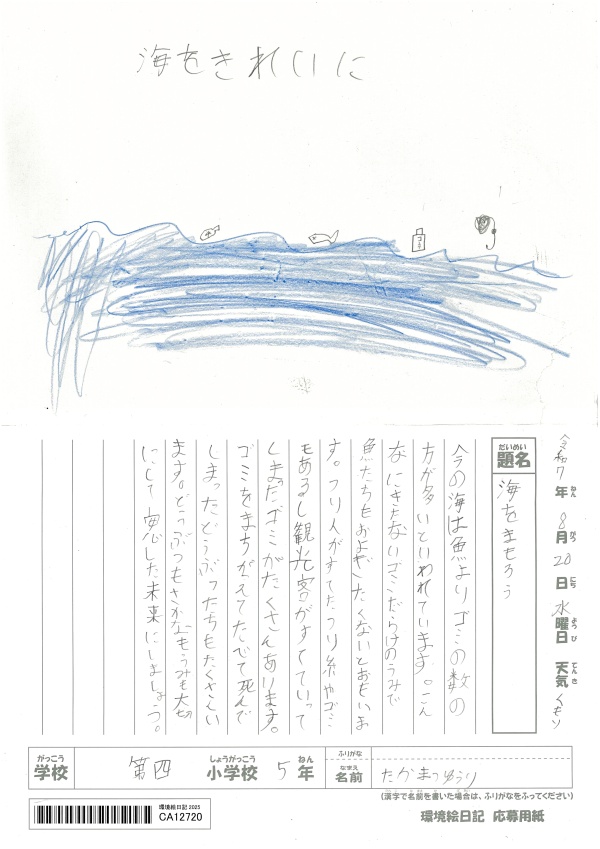 海をきれいに
ゴミ
令和7年 8月20日 水曜日 天気くもり
ねん がつ にち ようび てんき
だいめい
題名
海をまもろう
今の海は魚よりゴミの数の
方が多いといわれています。こん
なにきたないゴミだらけのうみで
魚たちもおよぎたくないとおもいま
す。つり人がすてたつり糸やゴミ
もあるし観光客がすてていって
しまったゴミがたくさんあります。
ゴミをまちがえてたべて死んで
しまったどうぶつたちもたくさんい
ます。どうぶつもさかなもうみも大切
にして安心した未来にしましょう。
がっこう しょうがっこう ねん
学校 第四 小学校 5年
ふりがな
なまえ
名前 たかまつゆうり
(漢字で名前を書いた場合は、ふりがなをふってください)
環境絵日記 2025
CA12720
環境絵日記 応募用紙